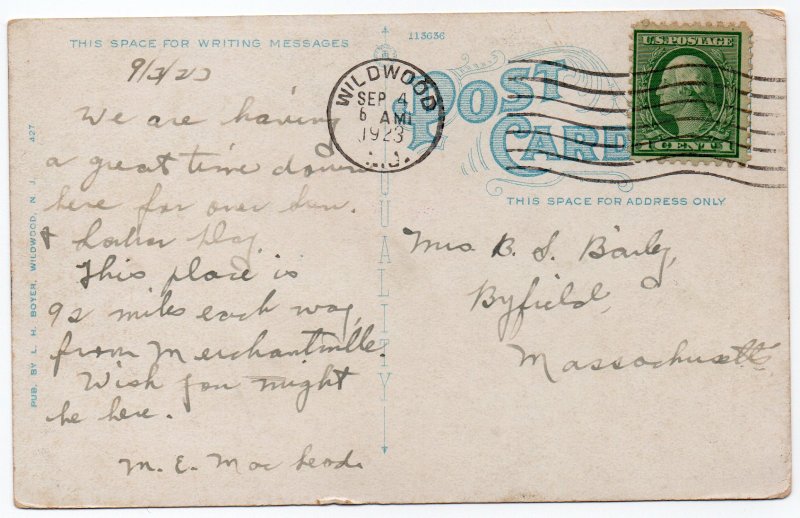 THIS SPACE FOR WRITING MESSAGES
113636
9/3/23
We are having
a great time down
here for over Sun.
+ Labor Day.
This place is
92 miles each way
from Merchantville.
Wish you might
be here.
M. E. Mac
PUB. BY L. H. BOYER, WILDWOOD, N. J.
427
QUALITY
WILDWOOD
SEP 4
6 AM
1923
N.J.
POST
CARD
U.S. POSTAGE
1 CENT 1
THIS SPACE FOR ADDRESS ONLY
Mrs B. S. Baily,
Byfield,
Massachusetts